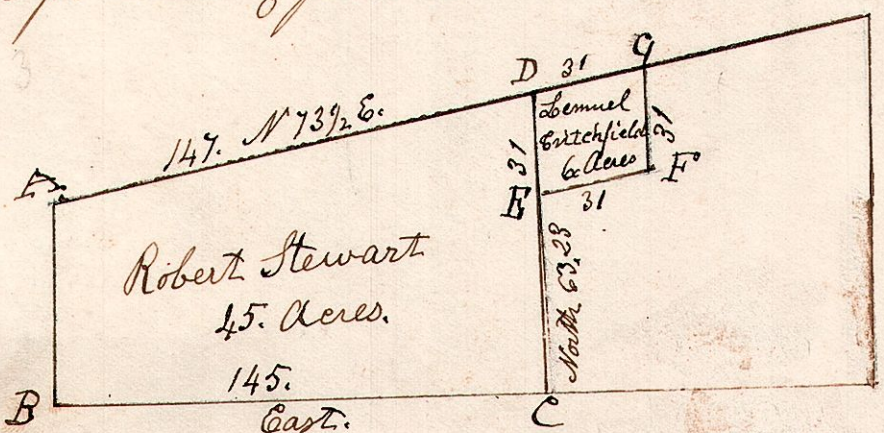 D 31 G
147. N 73½ E.
Lemuel
Critchfield
6 Acres
31
31
A.
E
F
31
Robert Stewart
45. Acres.
North 63,23
145.
B
East.
C